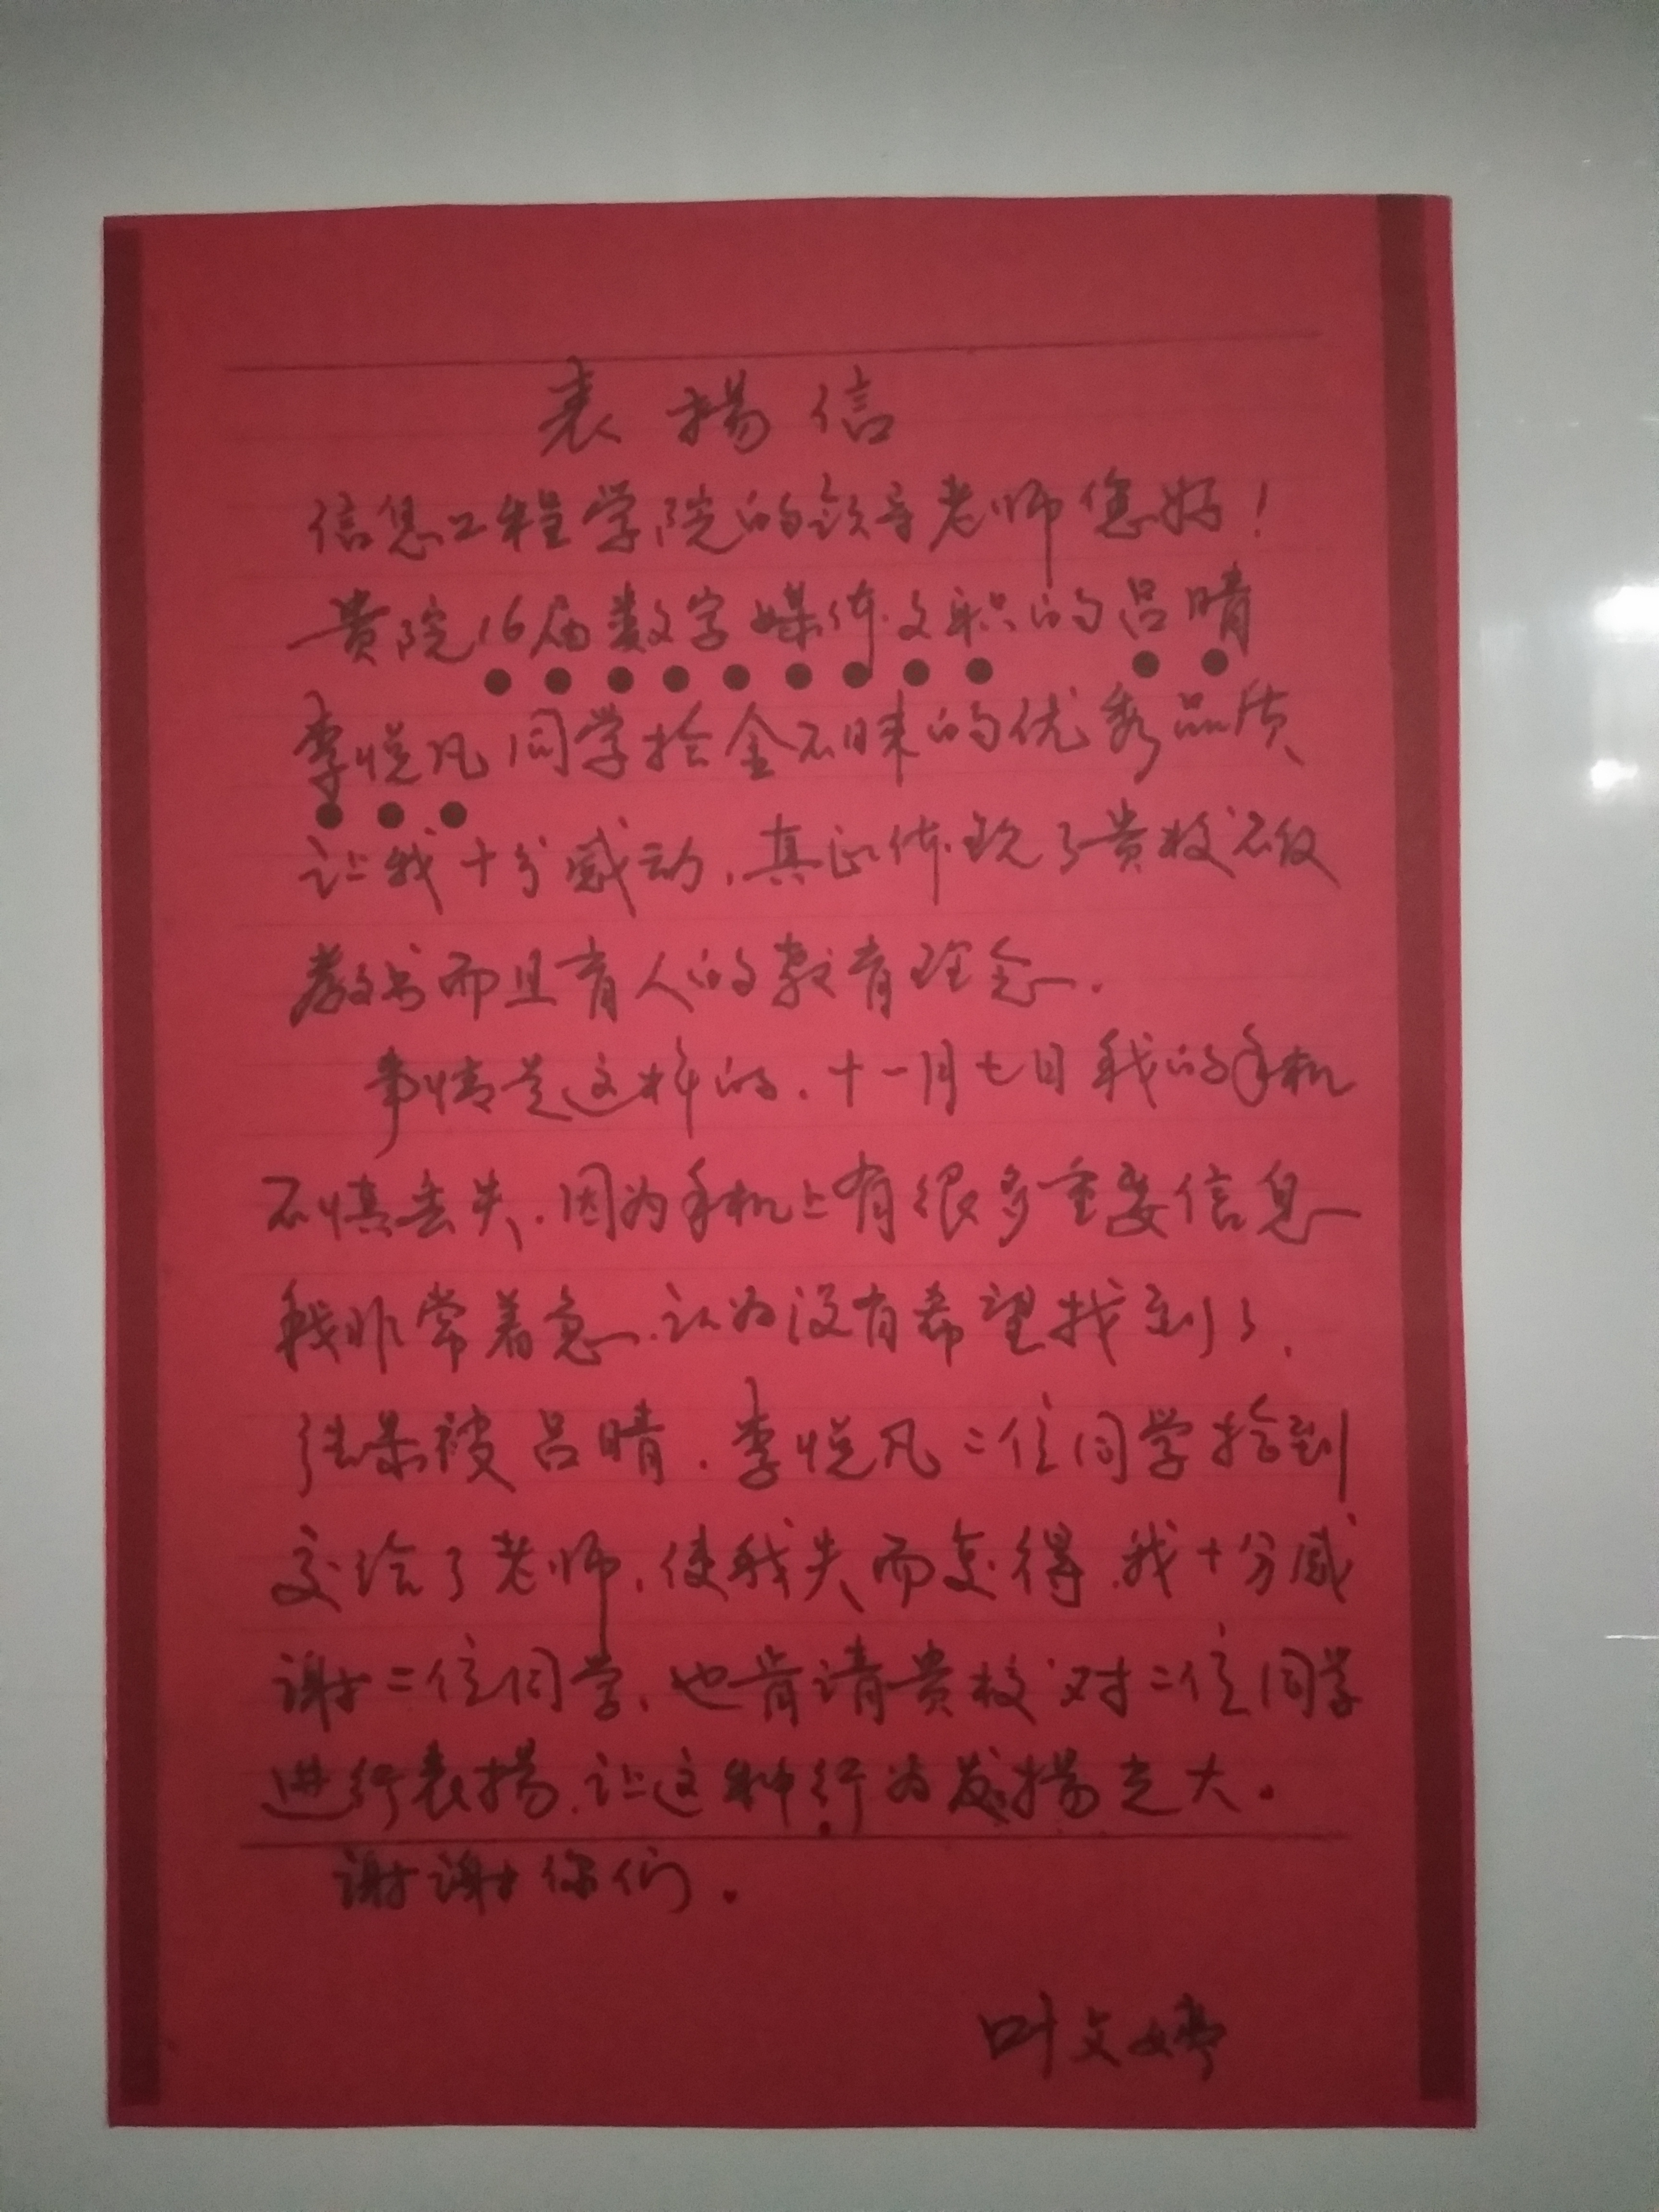 表扬信
信息工程学院的领导老师您好！
贵院16届数字媒体文职的吕晴
李悦凡同学拾金不昧的优秀品质
让我十分感动，真正体现了贵校不仅
教书而且育人的教育理念.
事情是这样的.十一月七日我的手机
不慎丢失.因为手机上有很多重要信息
我非常着急.认为没有希望找到了.
结果被吕晴.李悦凡二位同学拾到
交给了老师.使我失而复得.我十分感
谢二位同学.也肯请贵校对二位同学
进行表扬.让这种行为发扬光大。
谢谢你们.
叶文婷